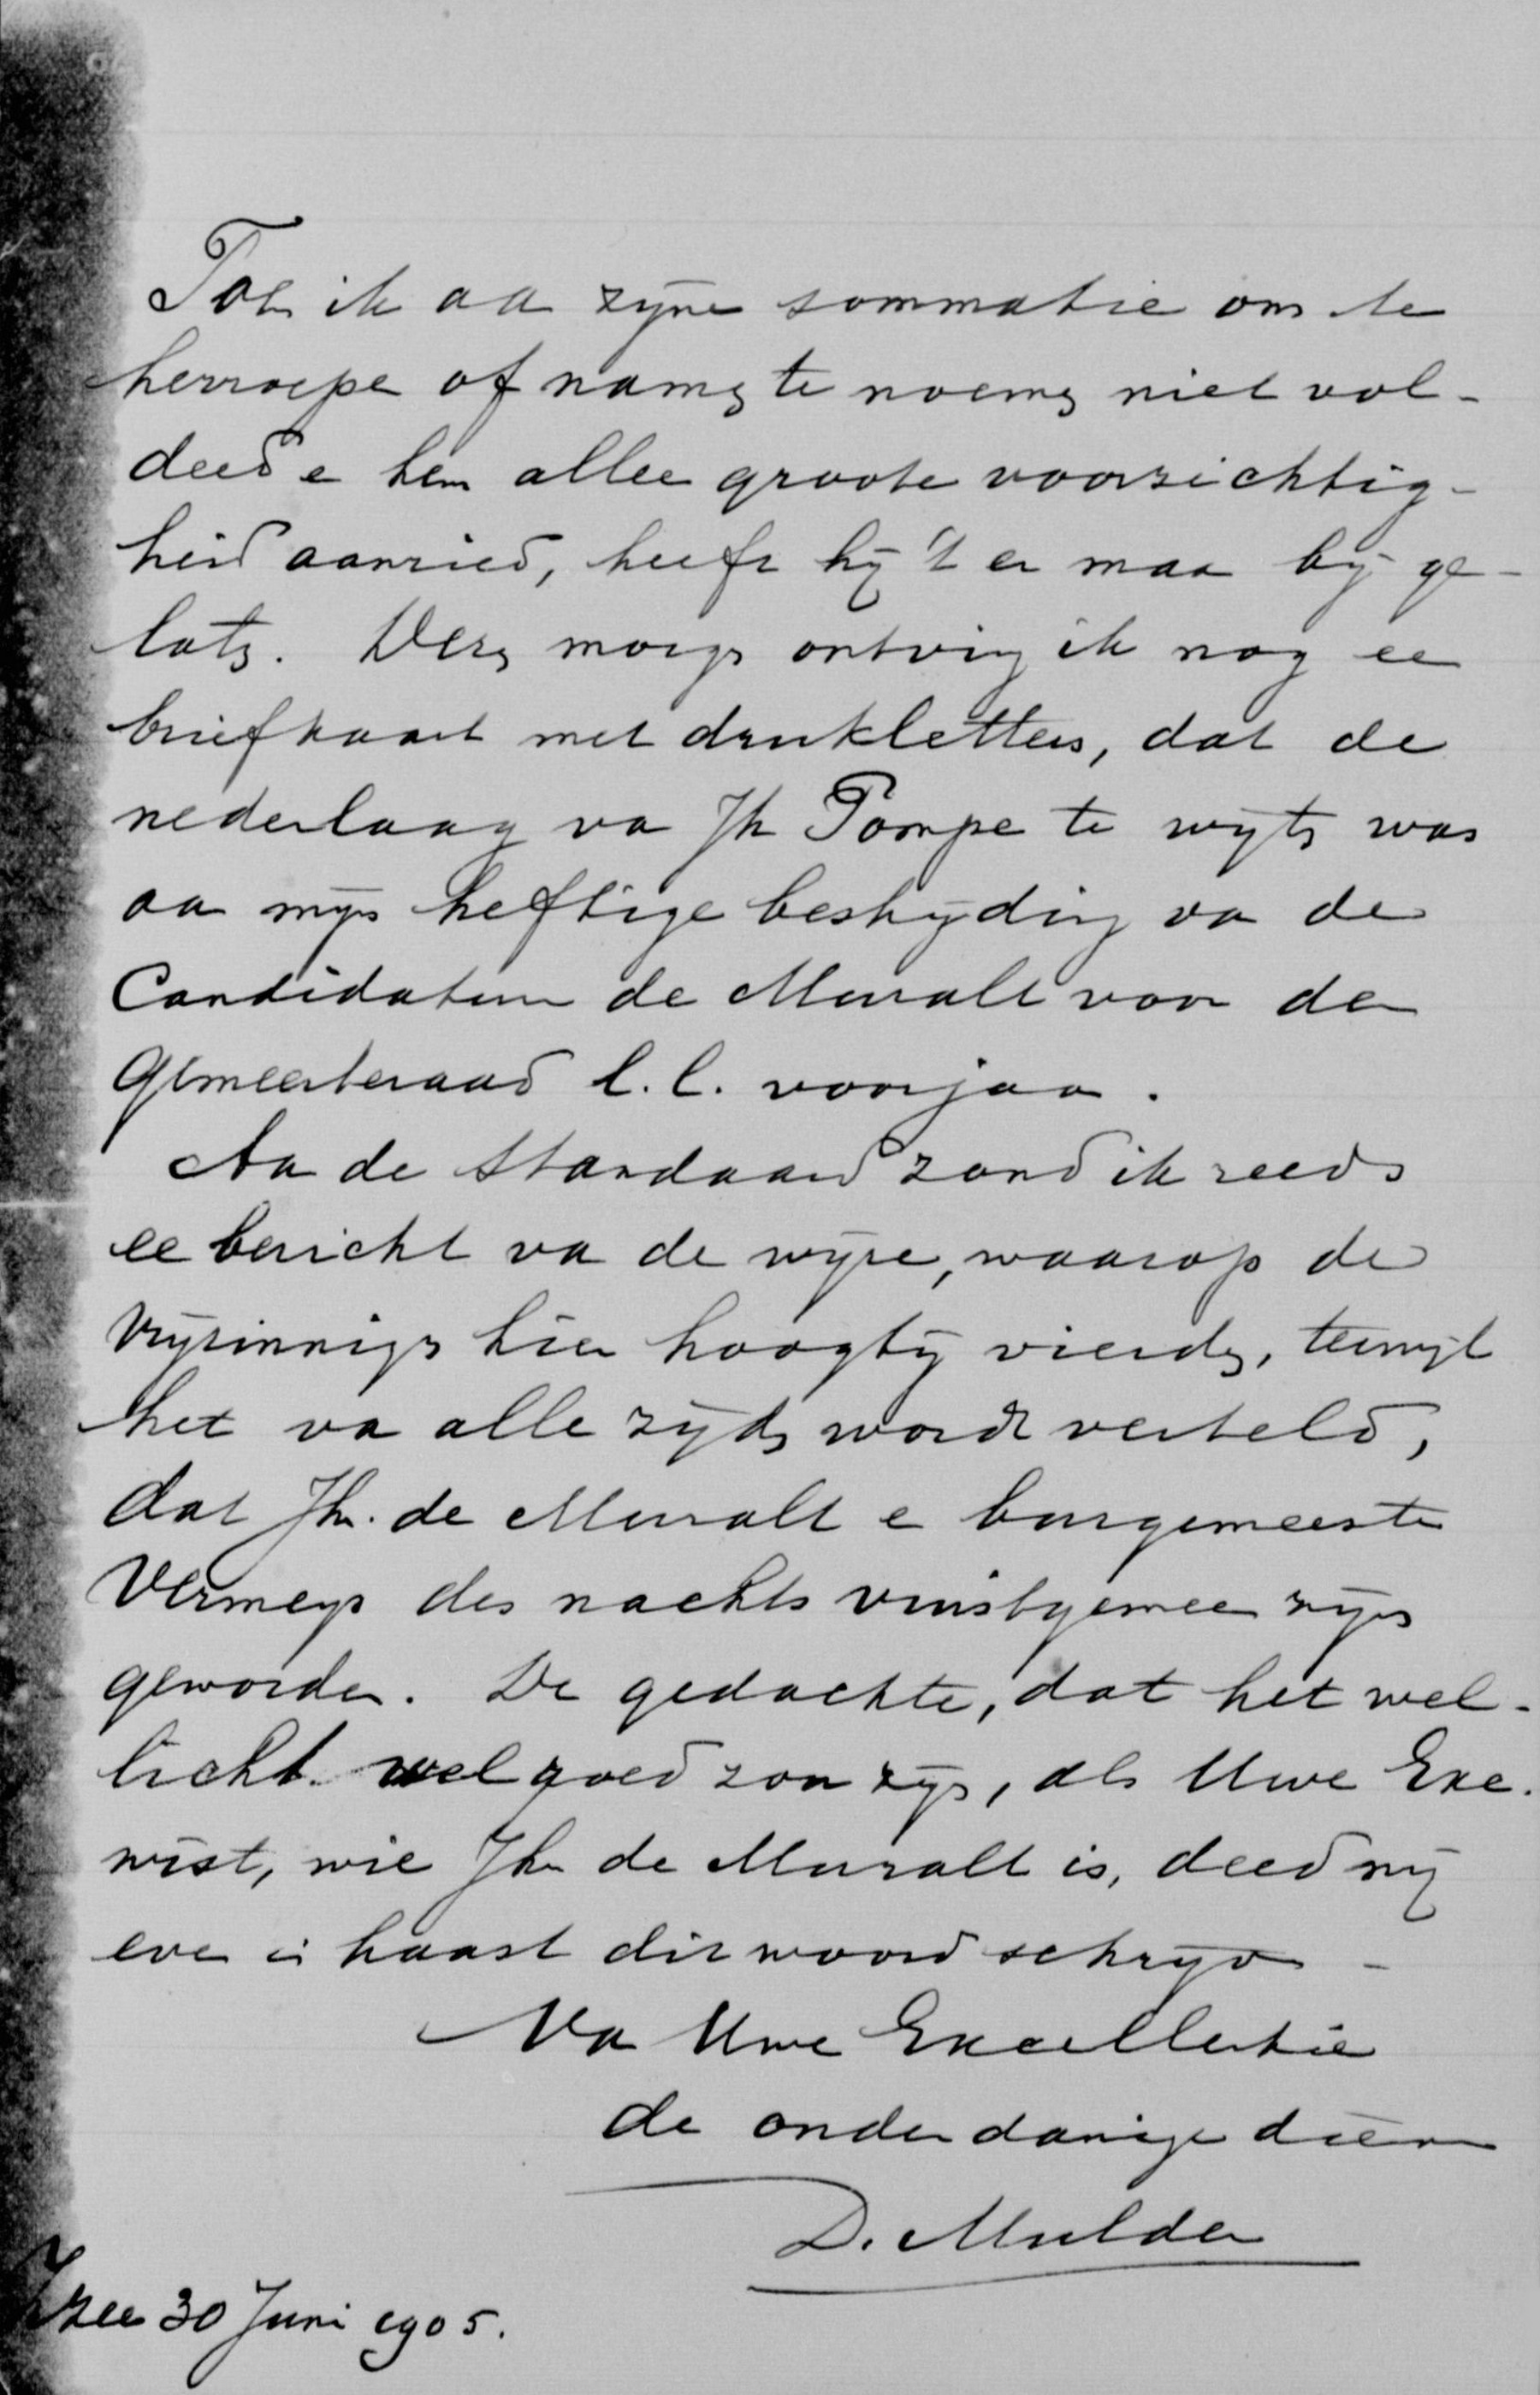 Toen ik aan zijne sommatie om te
herroepen of namen te noemen niet vol-
deed en hem alleen groote voorzichtig-
heid aanried, heeft hij 't er maar bij ge-
laten. Dezen morgen ontving ik nog een
briefkaart met drukletters, dat de
nederlaag van Jhr Pompe te wijten was
aan mijn heftige bestrijding van de
Candidatuur de Muralt voor den
Gemeenteraad l.l. voorjaar.
Aan de Standaard zond ik reeds
een bericht van de wijze, waarop de
Vrijzinnigen hier hoogtij vierden, terwijl
het van alle zijden wordt verteld,
dat Jhr. de Muralt en burgemeester
Vermeijs des nachts zijn
geworden. De gedachte, dat het wel-
licht wel goed zou zijn, als Uwe Exc.
wist, wie Jhr de Muralt is, deed mij
even in haast dit woord schrijven -
Van Uwe Excellentie
de onderdanige dienaar
D. Mulder
30 Juni 1905.